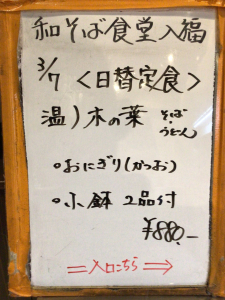 和そば食堂入福
3/7 〈日替定食〉
温)木の葉 そば・うどん
・おにぎり(かつお)
・小鉢 2品付
¥880.-
⇒入口こちら⇒